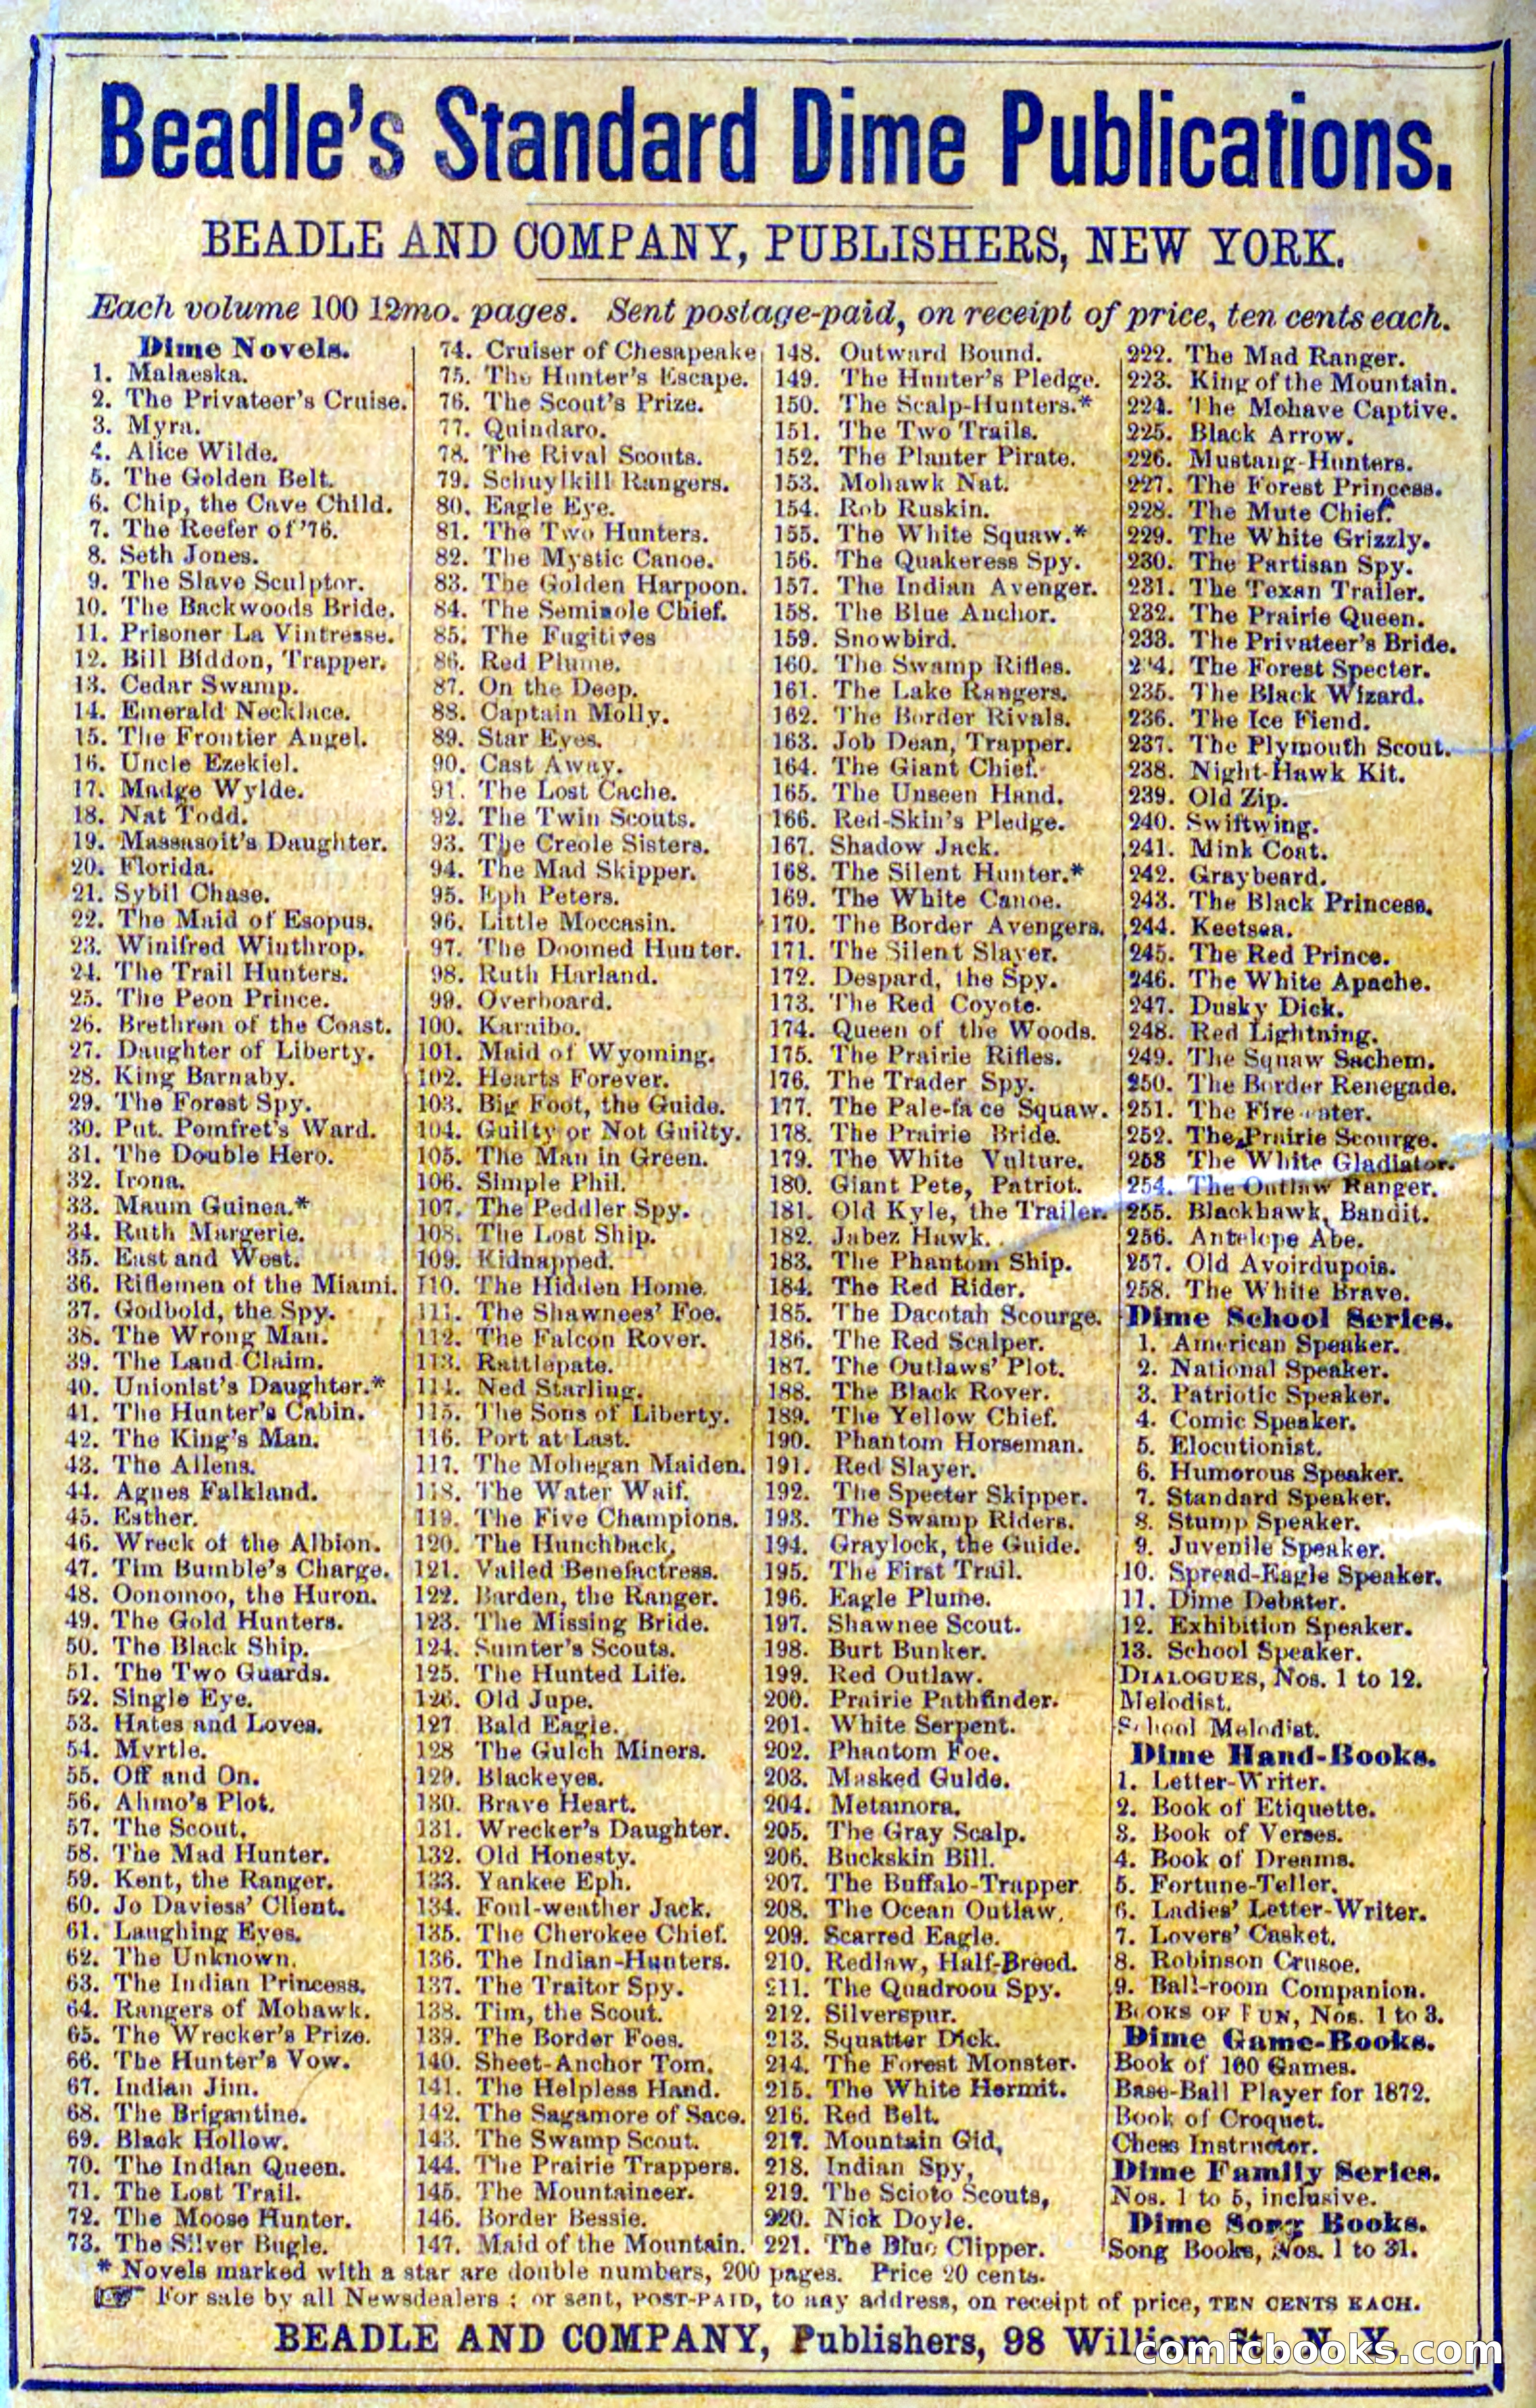 Beadle's Standard Dime Publications.
BEADLE AND COMPANY, PUBLISHERS, NEW YORK.
Each volume 100 12mo. pages. Sent postage-paid, on receipt of price, ten cents each.
Dime Novels.
1. Malaeska.
2. The Privateer's Cruise.
3. Myra.
4. Alice Wilde.
5. The Golden Belt.
6. Chip, the Cave Child.
7. The Reefer of '76.
8. Seth Jones.
9. The Slave Sculptor.
10. The Backwoods Bride.
11. Prisoner La Vintresse.
12. Bill Biddon, Trapper.
13. Cedar Swamp.
14. Emerald Necklace.
15. The Frontier Angel.
16. Uncle Ezekiel.
17. Madge Wylde.
18. Nat Todd.
19. Massasoit's Daughter.
20. Florida.
21. Sybil Chase.
22. The Maid of Esopus.
23. Winifred Winthrop.
24. The Trail Hunters.
25. The Peon Prince.
26. Brethren of the Coast.
27. Daughter of Liberty.
28. King Barnaby.
29. The Forest Spy.
30. Put. Pomfret's Ward.
31. The Double Hero.
32. Irona.
33. Maum Guinea.*
34. Ruth Margerie.
35. East and West.
36. Riflemen of the Miami.
37. Godbold, the Spy.
38. The Wrong Man.
39. The Land Claim.
40. Unionist's Daughter.*
41. The Hunter's Cabin.
42. The King's Man.
43. The Allens.
44. Agnes Falkland.
45. Esther.
46. Wreck of the Albion.
47. Tim Bumble's Charge.
48. Oonomoo, the Huron.
49. The Gold Hunters.
50. The Black Ship.
51. The Two Guards.
52. Single Eye.
53. Hates and Loves.
54. Myrtle.
55. Off and On.
56. Ahmo's Plot.
57. The Scout.
58. The Mad Hunter.
59. Kent, the Ranger.
60. Jo Daviess' Client.
61. Laughing Eyes.
62. The Unknown.
63. The Indian Princess.
64. Rangers of Mohawk.
65. The Wrecker's Prize.
66. The Hunter's Vow.
67. Indian Jim.
68. The Brigantine.
69. Black Hollow.
70. The Indian Queen.
71. The Lost Trail.
72. The Moose Hunter.
73. The Silver Bugle.
74. Cruiser of Chesapeake
75. The Hunter's Escape.
76. The Scout's Prize.
77. Quindaro.
78. The Rival Scouts.
79. Schuylkill Rangers.
80. Eagle Eye.
81. The Two Hunters.
82. The Mystic Canoe.
83. The Golden Harpoon.
84. The Seminole Chief.
85. The Fugitives
86. Red Plume.
87. On the Deep.
88. Captain Molly.
89. Star Eyes.
90. Cast Away.
91. The Lost Cache.
92. The Twin Scouts.
93. The Creole Sisters.
94. The Mad Skipper.
95. Eph Peters.
96. Little Moccasin.
97. The Doomed Hunter.
98. Ruth Harland.
99. Overboard.
100. Karaibo.
101. Maid of Wyoming.
102. Hearts Forever.
103. Big Foot, the Guide.
104. Guilty or Not Guilty.
105. The Man in Green.
106. Simple Phil.
107. The Peddler Spy.
108. The Lost Ship.
109. Kidnapped.
110. The Hidden Home.
111. The Shawnees' Foe.
112. The Falcon Rover.
113. Rattlepate.
114. Ned Starling.
115. The Sons of Liberty.
116. Port at Last.
117. The Mohegan Maiden.
118. The Water Waif.
119. The Five Champions.
120. The Hunchback.
121. Vailed Benefactress.
122. Barden, the Ranger.
123. The Missing Bride.
124. Sumter's Scouts.
125. The Hunted Life.
126. Old Jupe.
127 Bald Eagle.
128 The Gulch Miners.
129. Blackeyes.
130. Brave Heart.
131. Wrecker's Daughter.
132. Old Honesty.
133. Yankee Eph.
134. Foul-weather Jack.
135. The Cherokee Chief.
136. The Indian-Hunters.
137. The Traitor Spy.
138. Tim, the Scout.
139. The Border Foes.
140. Sheet-Anchor Tom.
141. The Helpless Hand.
142. The Sagamore of Saco.
143. The Swamp Scout.
144. The Prairie Trappers.
145. The Mountaineer.
146. Border Bessie.
147. Maid of the Mountain.
148. Outward Bound.
149. The Hunter's Pledge.
150. The Scalp-Hunters.*
151. The Two Trails.
152. The Planter Pirate.
153. Mohawk Nat.
154. Rob Ruskin.
155. The White Squaw.*
156. The Quakeress Spy.
157. The Indian Avenger.
158. The Blue Anchor.
159. Snowbird.
160. The Swamp Rifles.
161. The Lake Rangers.
162. The Border Rivals.
163. Job Dean, Trapper.
164. The Giant Chief.
165. The Unseen Hand.
166. Red-Skin's Pledge.
167. Shadow Jack.
168. The Silent Hunter.*
169. The White Canoe.
170. The Border Avengers.
171. The Silent Slayer.
172. Despard, the Spy.
173. The Red Coyote.
174. Queen of the Woods.
175. The Prairie Rifles.
176. The Trader Spy.
177. The Pale-face Squaw.
178. The Prairie Bride.
179. The White Vulture.
180. Giant Pete, Patriot.
181. Old Kyle, the Trailer.
182. Jabez Hawk.
183. The Phantom Ship.
184. The Red Rider.
185. The Dacotah Scourge.
186. The Red Scalper.
187. The Outlaws' Plot.
188. The Black Rover.
189. The Yellow Chief.
190. Phantom Horseman.
191. Red Slayer.
192. The Specter Skipper.
193. The Swamp Riders.
194. Graylock, the Guide.
195. The First Trail.
196. Eagle Plume.
197. Shawnee Scout.
198. Burt Bunker.
199. Red Outlaw.
200. Prairie Pathfinder.
201. White Serpent.
202. Phantom Foe.
203. Masked Guide.
204. Metamora.
205. The Gray Scalp.
206. Buckskin Bill.
207. The Buffalo-Trapper
208. The Ocean Outlaw.
209. Scarred Eagle.
210. Redlaw, Half-Breed.
211. The Quadroon Spy.
212. Silverspur.
213. Squatter Dick.
214. The Forest Monster.
215. The White Hermit.
216. Red Belt.
217. Mountain Gid,
218. Indian Spy,
219. The Scioto Scouts,
220. Nick Doyle.
221. The Blue Clipper.
222. The Mad Ranger.
223. King of the Mountain.
224. The Mohave Captive.
225. Black Arrow.
226. Mustang-Hunters.
227. The Forest Princess.
228. The Mute Chief.
229. The White Grizzly.
230. The Partisan Spy.
231. The Texan Trailer.
232. The Prairie Queen.
233. The Privateer's Bride.
234. The Forest Specter.
235. The Black Wizard.
236. The Ice Fiend.
237. The Plymouth Scout.
238. Night-Hawk Kit.
239. Old Zip.
240. Swiftwing.
241. Mink Coat.
242. Graybeard.
243. The Black Princess.
244. Keetsea.
245. The Red Prince.
246. The White Apache.
247. Dusky Dick.
248. Red Lightning.
249. The Squaw Sachem.
250. The Border Renegade.
251. The Fire-eater.
252. The Prairie Scourge.
253 The White Gladiator.
254. The Outlaw Ranger.
255. Blackhawk, Bandit.
256. Antelope Abe.
257. Old Avoirdupois.
258. The White Brave.
Dime School Series.
1. American Speaker.
2. National Speaker.
3. Patriotic Speaker.
4. Comic Speaker.
5. Elocutionist.
6. Humorous Speaker.
7. Standard Speaker.
8. Stump Speaker.
9. Juvenile Speaker.
10. Spread-Eagle Speaker.
11. Dime Debater.
12. Exhibition Speaker.
13. School Speaker.
DIALOGUES, Nos. 1 to 12.
Melodist.
School Melodist.
Dime Hand-Books.
1. Letter-Writer.
2. Book of Etiquette.
3. Book of Verses.
4. Book of Dreams.
5. Fortune-Teller.
6. Ladies' Letter-Writer.
7. Lovers' Casket.
8. Robinson Crusoe.
9. Ball-room Companion.
BOOKS OF FUN, Nos. 1 to 3.
Dime Game-Books.
Book of 100 Games.
Base-Ball Player for 1872.
Book of Croquet.
Chess Instructor.
Dime Family Series.
Nos. 1 to 5, inclusive.
Dime Song Books.
Song Books, Nos. 1 to 31.
* Novels marked with a star are double numbers, 200 pages. Price 20 cents.
☞ For sale by all Newsdealers ; or sent, POST-PAID, to any address, on receipt of price, TEN CENTS EACH.
BEADLE AND COMPANY, Publishers, 98 William St., N. Y.
comicbooks.com